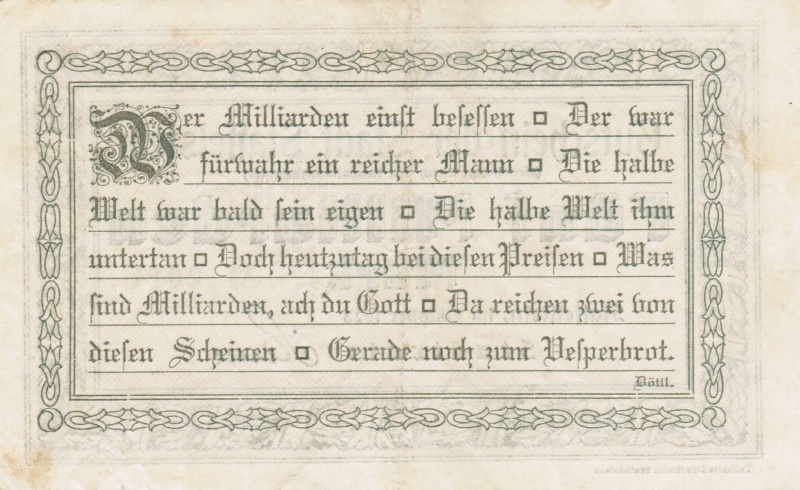 Wer Milliarden einst besessen ◻ Der war
fürwahr ein reicher Mann ◻ Die halbe
Welt war bald sein eigen ◻ Die halbe Welt ihm
untertan ◻ Doch heutzutag bei diesen Preisen ◻ Was
sind Milliarden, ach du Gott ◻ Da reichen zwei von
diesen Scheinen ◻ Gerade noch zum Vesperbrot.
Döttl.